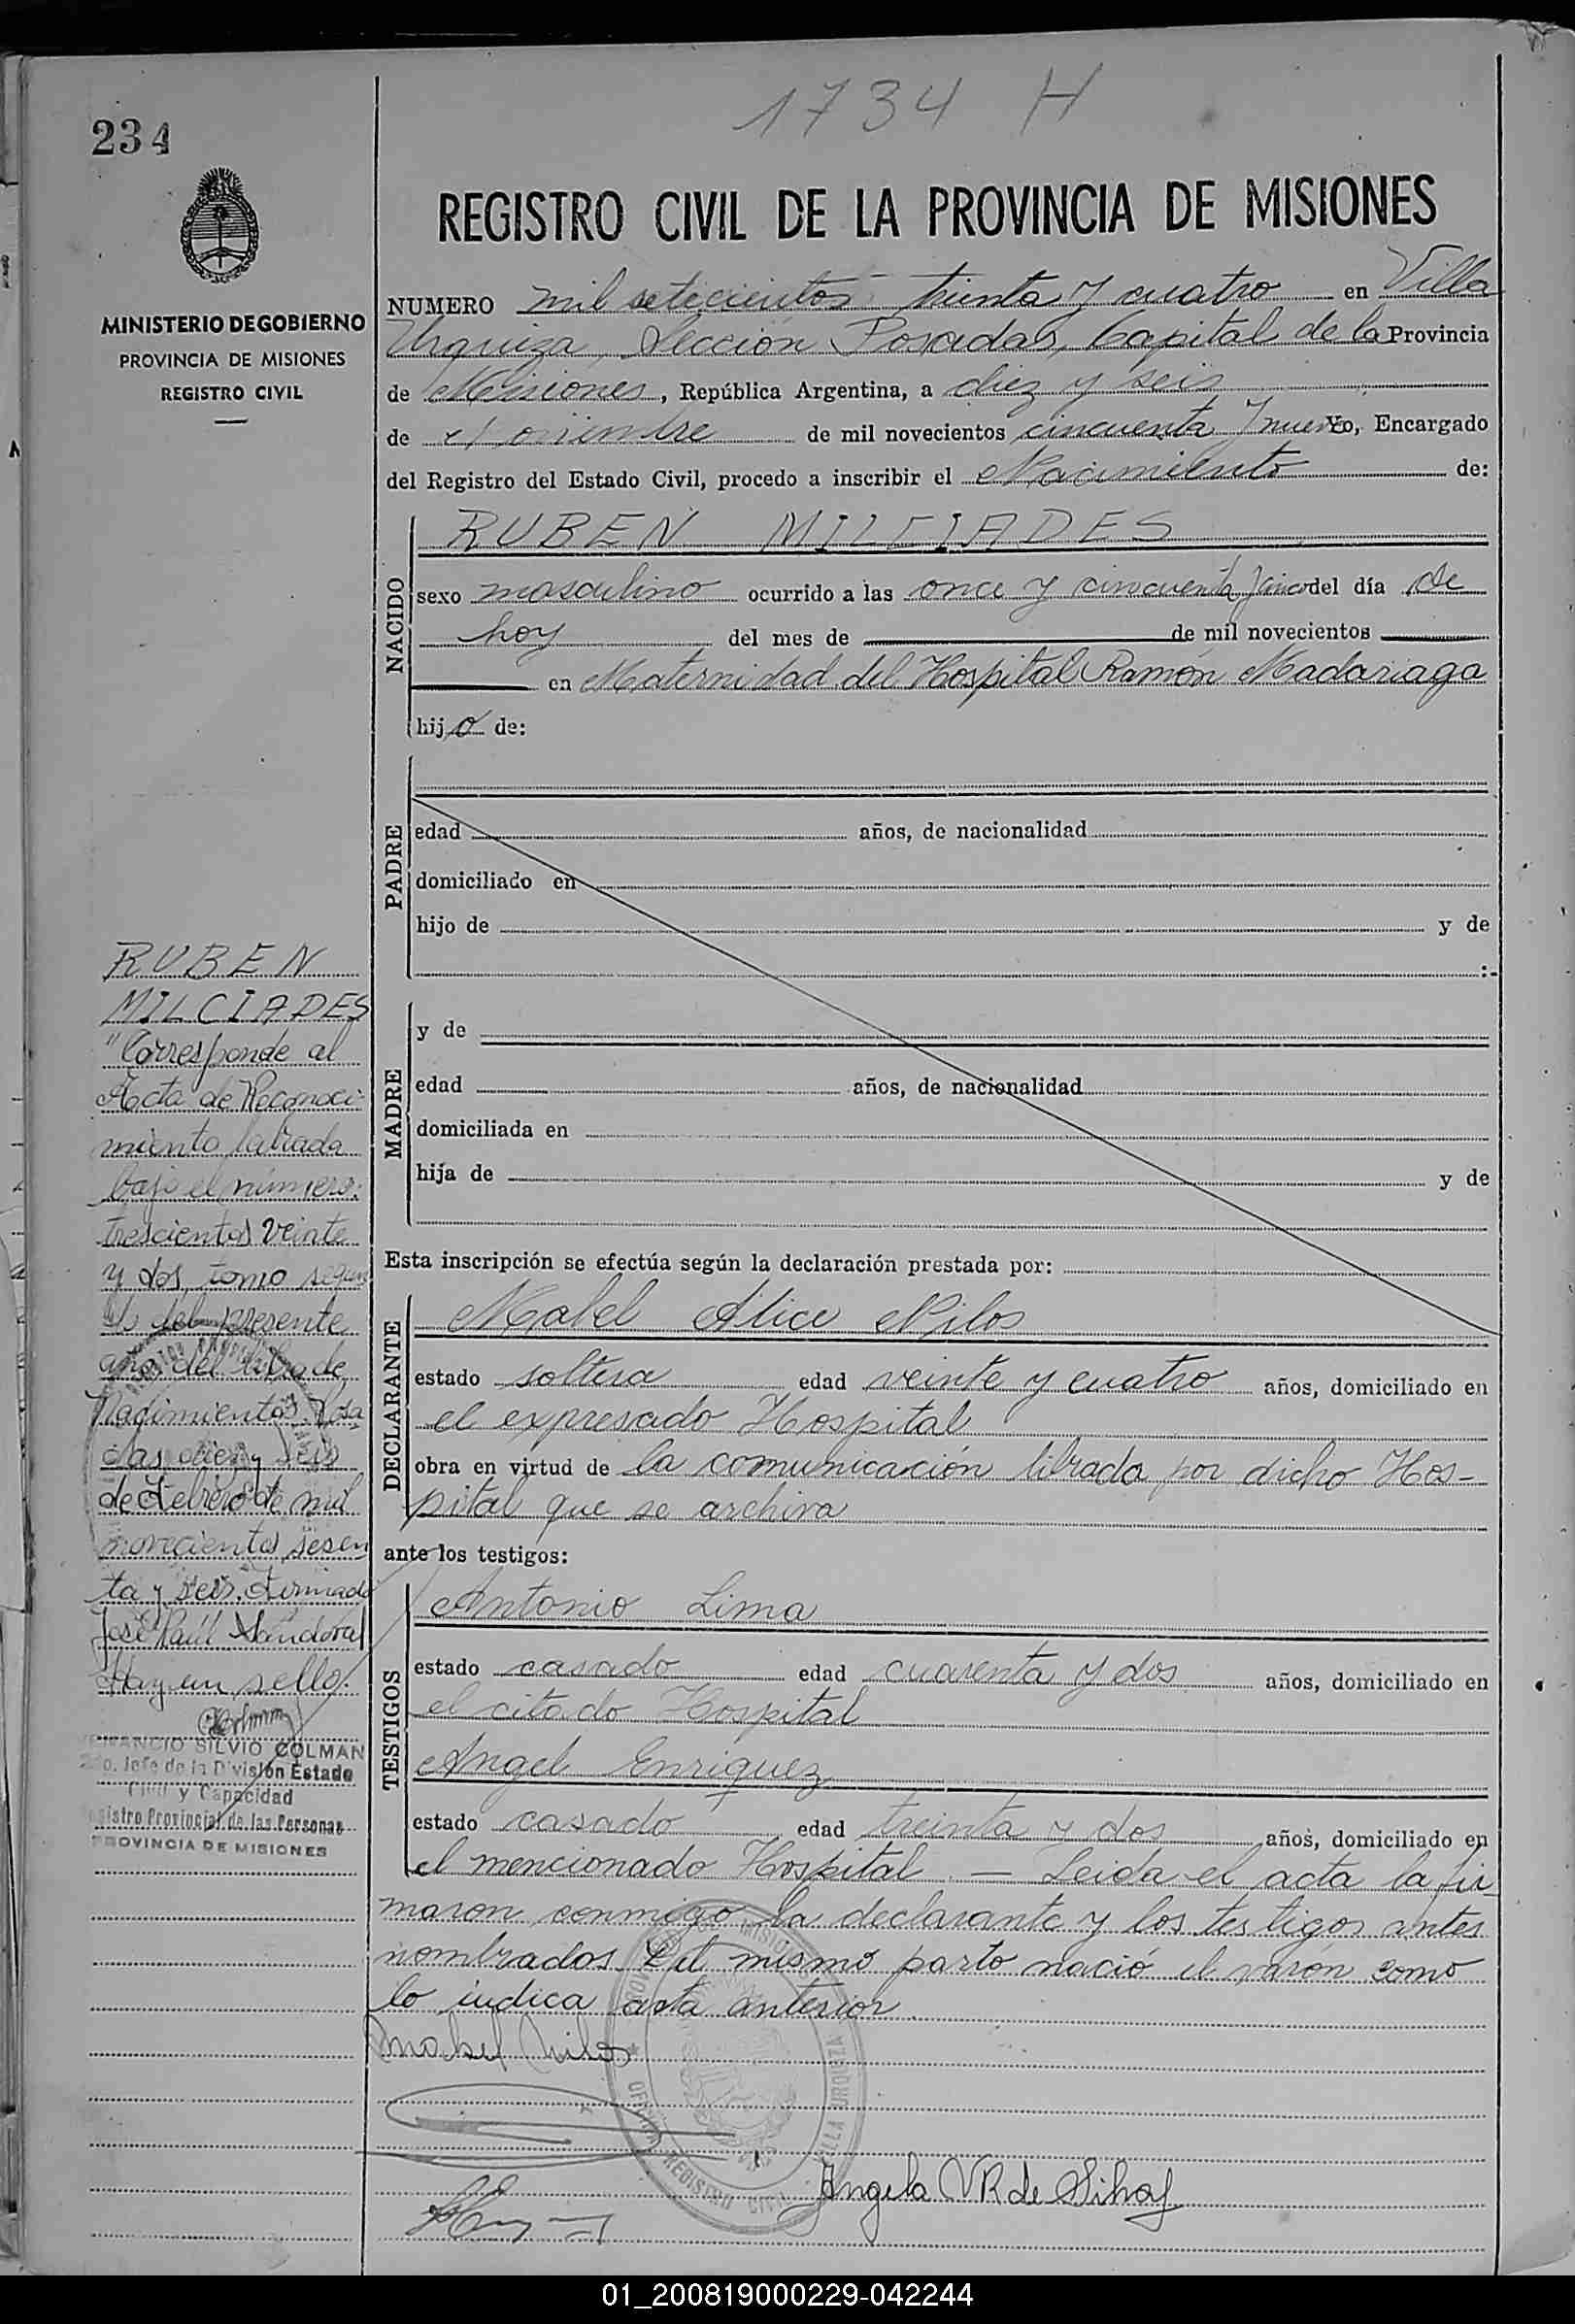 1734 H
234
REGISTRO CIVIL DE LA PROVINCIA DE MISIONES
MINISTERIO DE GOBIERNO
PROVINCIA DE MISIONES
REGISTRO CIVIL
NUMERO mil setecientos treinta y cuatro en Villa
Urquiza, Sección Posadas, Capital de la Provincia
de Misiones, República Argentina, a diez y seis
de Noviembre de mil novecientos cincuenta y nueve Yo, Encargado
del Registro del Estado Civil, procedo a inscribir el Nacimiento de:
NACIDO
RUBEN MILCIADES
sexo masculino ocurrido a las once y cincuenta y cinco del día de
hoy del mes de de mil novecientos
en Maternidad del Hospital Ramón Madariaga
hijo de:
PADRE
edad años, de nacionalidad
domiciliado en
hijo de y de
:-
MADRE
y de
edad años, de nacionalidad
domiciliada en
hija de y de
Esta inscripción se efectúa según la declaración prestada por:
DECLARANTE
Mabel Alice Nilos
estado soltera edad veinte y cuatro años, domiciliado en
el expresado Hospital
obra en virtud de la comunicación librada por dicho Hos-
pital que se archiva
ante los testigos:
TESTIGOS
Antonio Lima
estado casado edad cuarenta y dos años, domiciliado en
el citado Hospital
Angel Enriquez
estado casado edad treinta y dos años, domiciliado en
el mencionado Hospital. — Leida el acta la fir-
maron conmigo la declarante y los testigos antes
nombrados. Del mismo parto nació el varón como
lo indica acta anterior.
Mabel Nilos
Angela VR de Sihaf
OFICINA REGISTRO CIVIL VILLA URQUIZA
RUBEN
MILCIADES
"Corresponde al
Acta de Reconoci-
miento labrada
bajo el número:
trescientos veinte
y dos, tomo segun
do del presente
año del libro de
Nacimientos. Posa-
das diez y seis
de Febrero de mil
novecientos sesen
ta y seis. Firmado
José Raúl Sandoval
Hay un sello.
SILVIO COLMAN
2do. Jefe de la División Estado
Civil y Capacidad
Registro Provincial de las Personas
PROVINCIA DE MISIONES
01_200819000229-042244